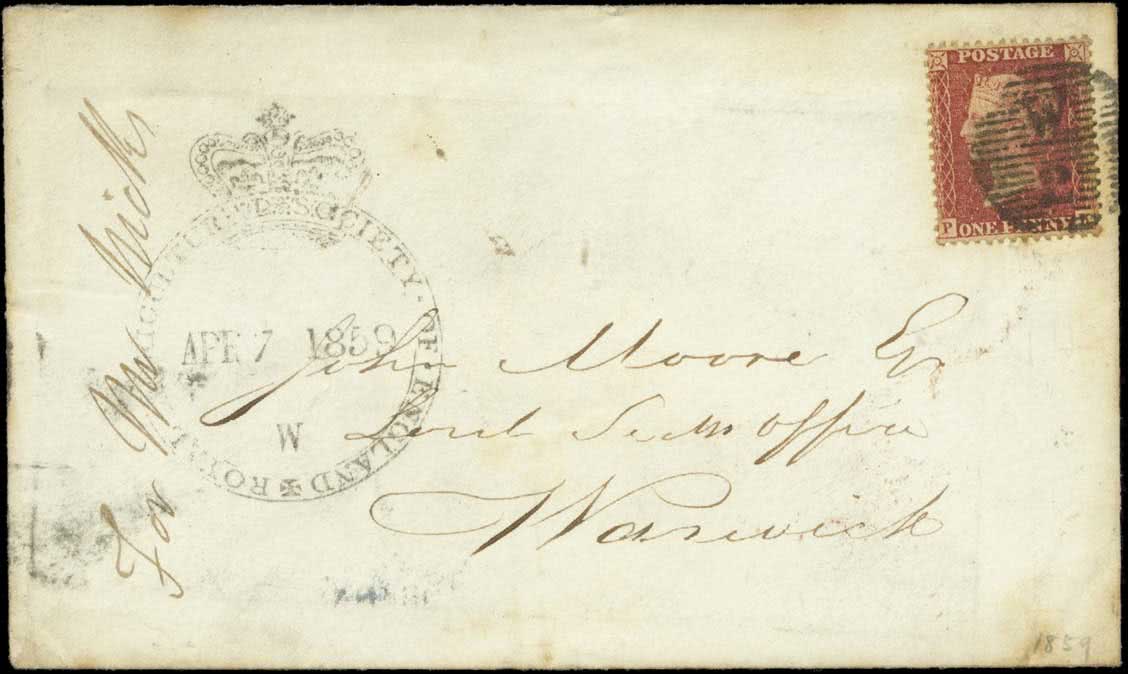 POSTAGE
W
P
ONE PENNY
ROYAL AGRICULTURAL SOCIETY · OF · ENGLAND
APR 7 1859
W
For Mr
John Moore Esq
Office
Warwick
1859